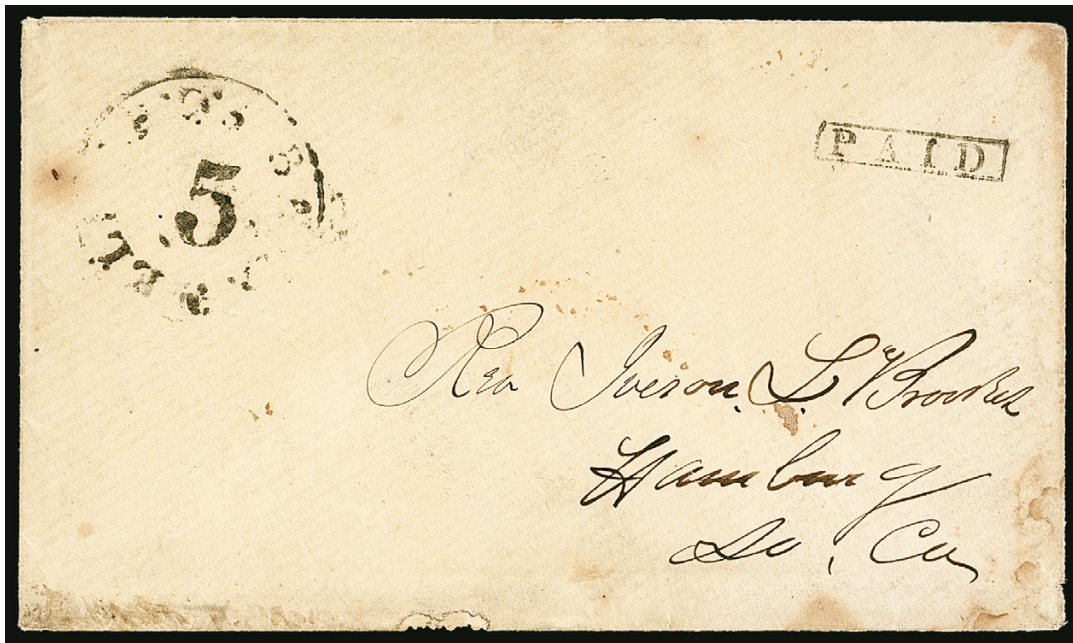 5
PAID
Rev Iveson L. Brookes
Hamburg
So. Ca